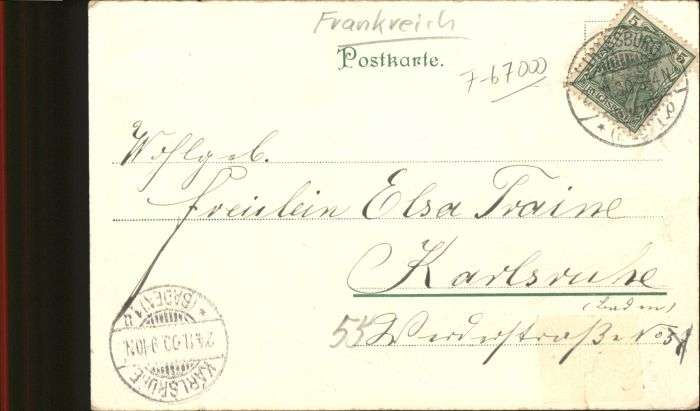 Frankreich
Postkarte.
7-67000
5
5
Wohlgeb.
Fräulein Elsa Traine
Karlsruhe
(Baden)
55 Werderstraße No 5
KARLSRUHE
24.11.00.9-10N.
(BADEN)